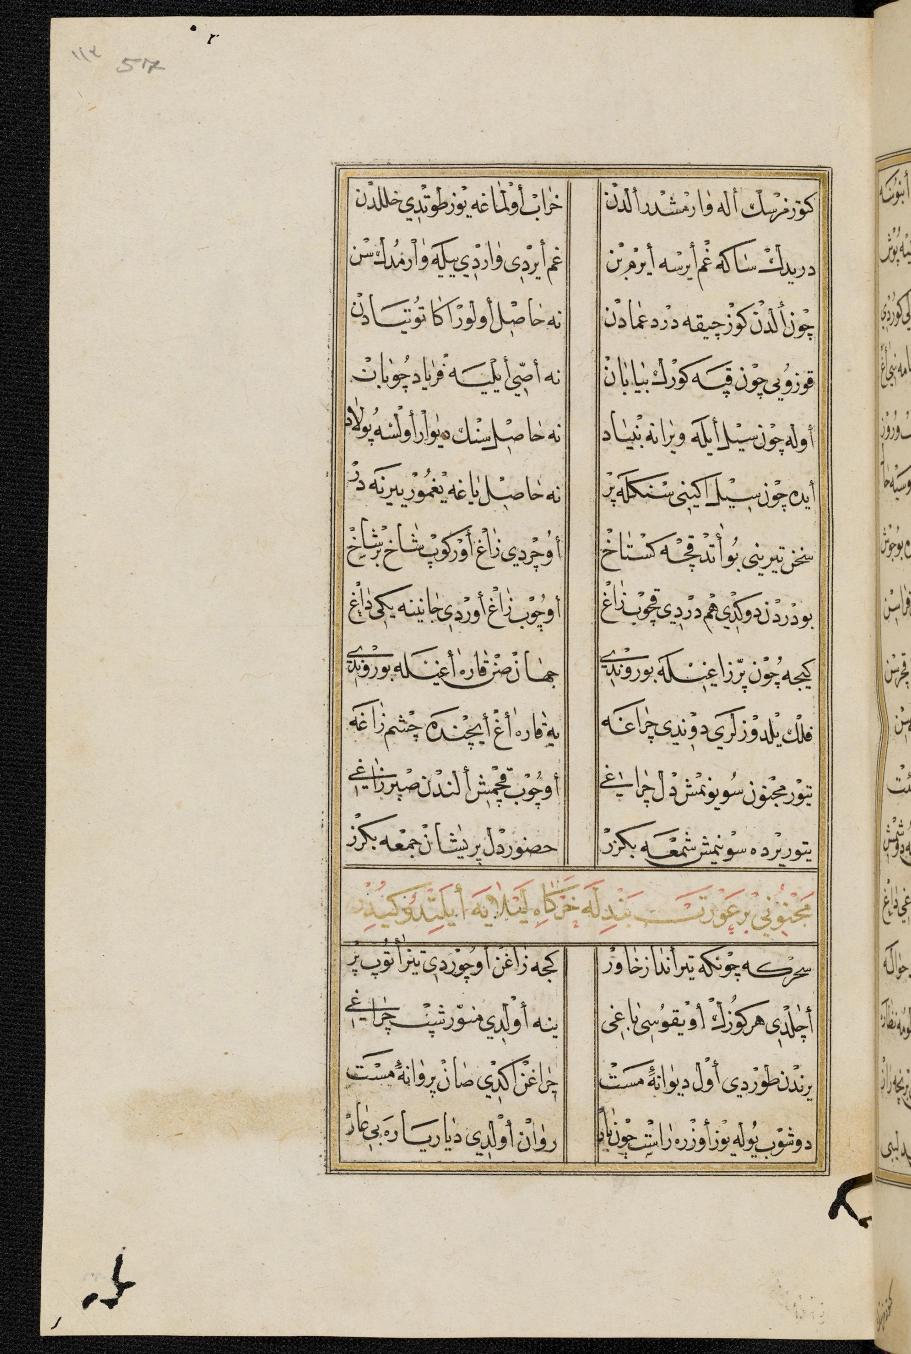 57
كوزنرسك أله وارمشدر ألدن خراب أولماغه يوز طوتدي خللدن
دريدك ساكه غم أيرسه أيرمزن غم أيردى واردي ييكه وارمدك سن
چون ألدن كوز چيقه درد عمادن نه حاصل أولور اكا توتيادن
قوزويى چون قپه كورك بيابان نه أصّي أيليه فرياد چوبان
أوله چون سيل أيله ويرانه بنياد نه حاصل سنك ديوار أولسه پولاد
أيده چون سيل اكينى سنكله پر نه حاصل ياغه يغمور ييرنه در
سخن تيرينى بو أتدقچه كستاخ أوچردي زاغ أوركوب شاخ بر شاخ
بو دردن دوكدي هم دردي قچوب زاغ أوچوب زاغ أوردي جانينه يكى داغ
كيجه چون پرّ زاغيله بوروندي جهان صن قاره أغيله بوروندي
فلك يلدوزلري دوندي چراغه يه قاره أغ أيچنده چشم زاغه
يتور مجنون سويونمش دل چراغى أوچوب قچمش ألندن صبر زاغى
يتور يرده سوينمش شمعه بكزر حضور دل پريشان جمعه بكزر
مجنونى بر عورت بندله خركاه ليلايه أيلتدوكيدر
سحركه چونكه تيرأنداز خاور كجه زاغن أوچوردي تيز أتوب پر
أچلدى هر كوزك أويقوسى باغى ينه أولدي منوّر شب چراغى
يرندن طوردى أول ديوانه مست چراغن اكدي صان پروانه مست
دوشوب يوله يوز أوزره راست چون باد روان أولدي ديار ياره بى